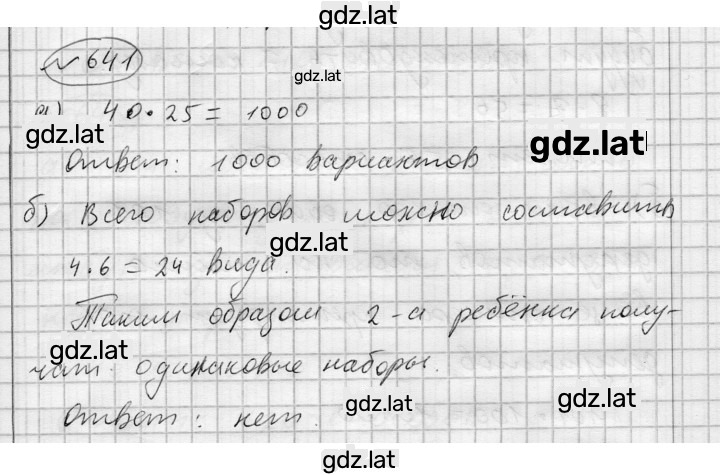 gdz.lat
№ 641
gdz.lat
а) 40 · 25 = 1000
gdz.lat
gdz.lat
Ответ: 1000 вариантов
б) Всего наборов можно составить
gdz.lat
4 · 6 = 24 вида.
Таким образом 2-а ребёнка полу-
gdz.lat
чат одинаковые наборы.
gdz.lat
gdz.lat
Ответ: нет.
gdz.lat